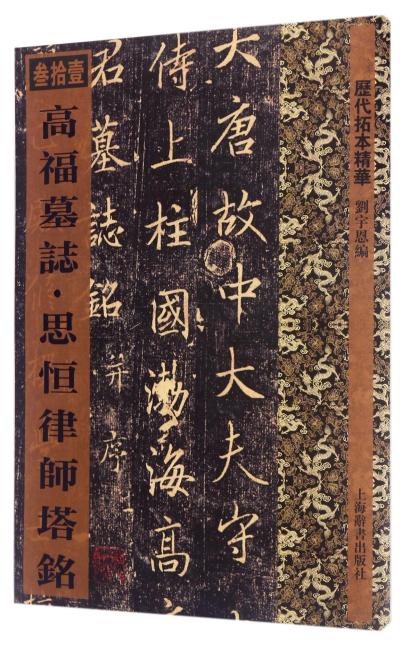 歷代拓本精華
劉宇恩編
上海辭書出版社
大唐故中大夫守
侍上柱國渤海高
君墓誌銘并序
叁拾壹
高福墓誌·思恒律師塔銘